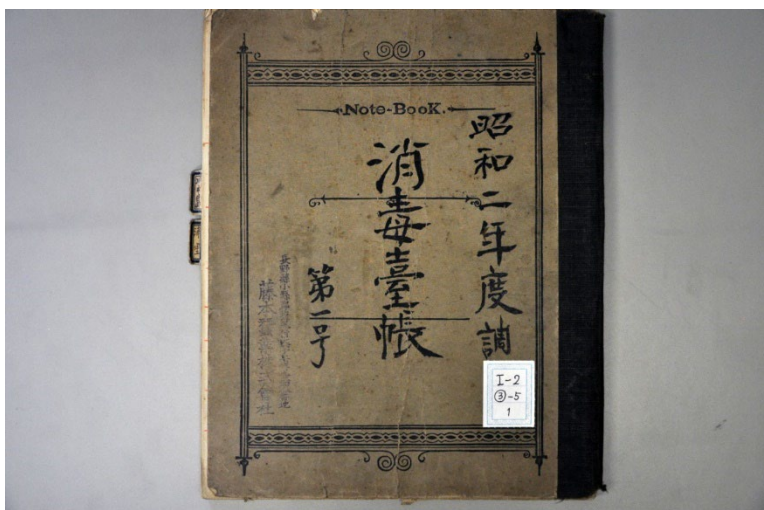 Note-BooK.
昭和二年度調
消毒臺帳
第一号
藤本蠶業株式會社
I-2
③-5
1